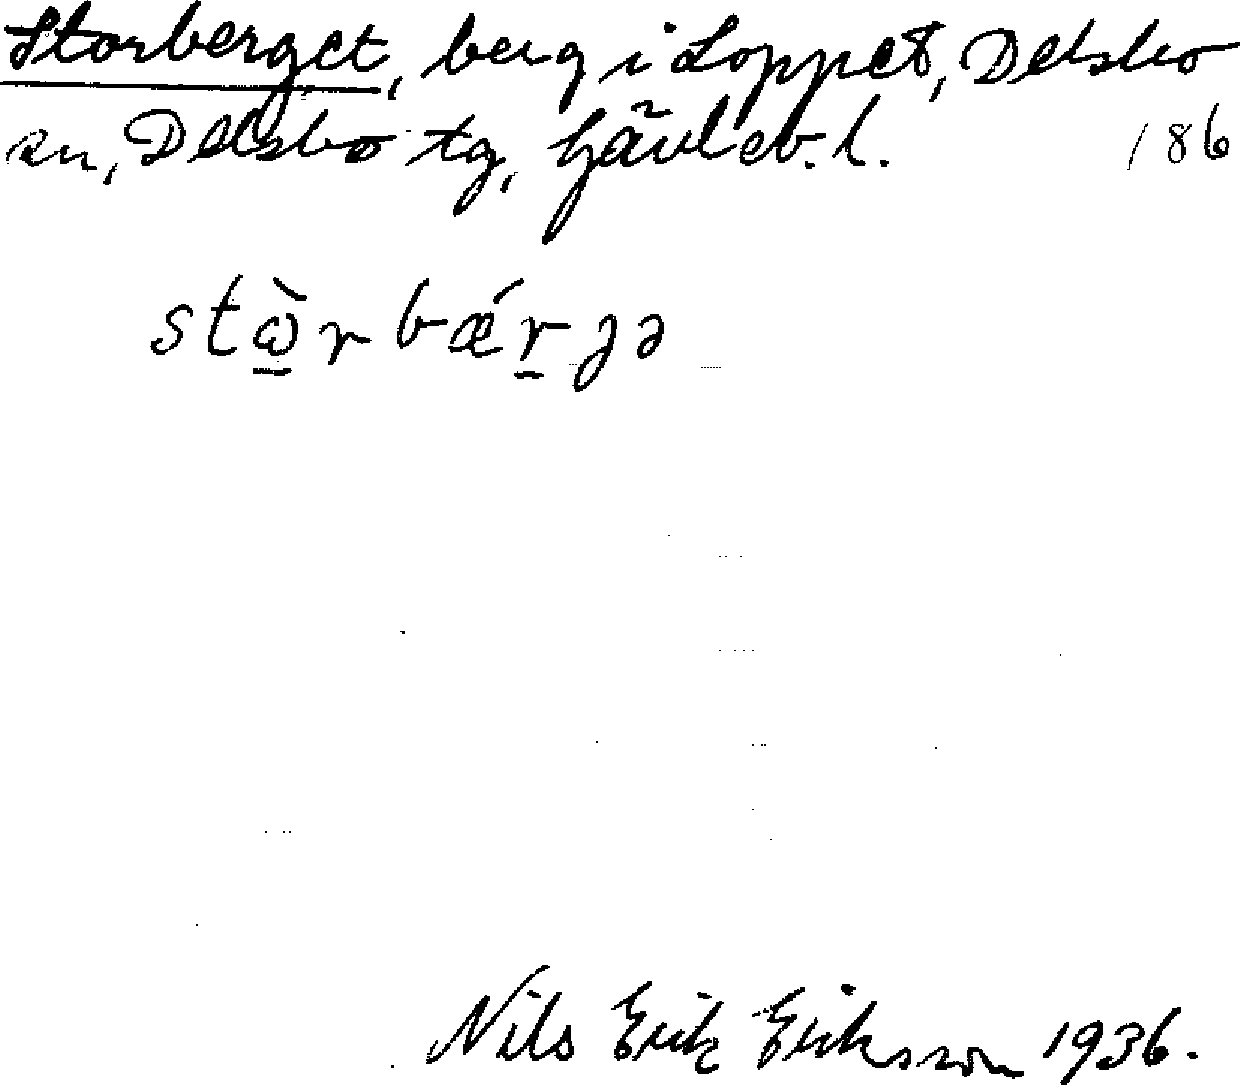 Storberget, berg i Loppet, Delsbo
sn, Delsbo tg, Gävleb. l. 186
stὼ̲rbǽr̲gə
Nils Erik Eriksson 1936.